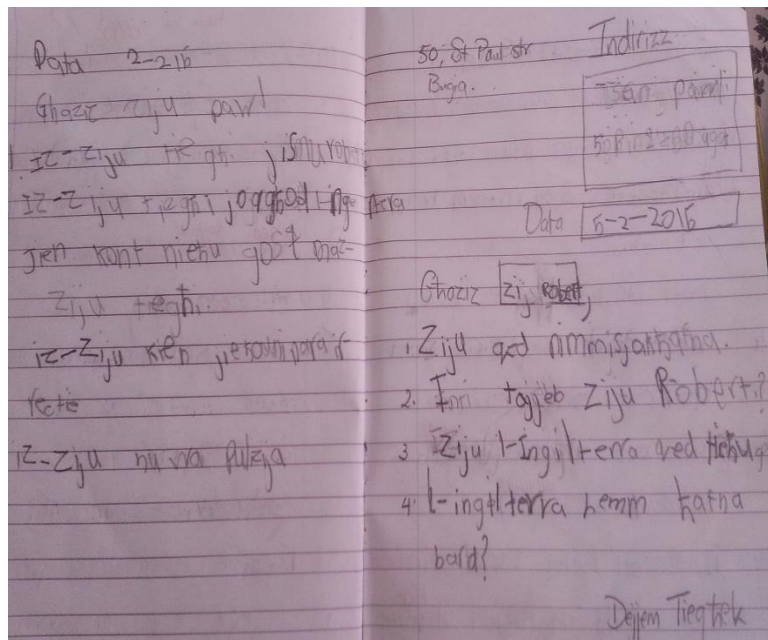 Data 2-216
Ghaziz ziju pawl
Iz-Ziju tieghi jismu robe
Iz-Ziju tieghi joqghod l-inge terra
Jien kont niehu gost maz-
Ziju tieghi
iz-Ziju kien
iz-Ziju huwa Pulizja
50, St Paul str
Bugia.
Indirizz
San pawl
Data 5-2-2016
Ghaziz Zij Robert,
1. Ziju qed nimmisjakhafna.
2. Inti tajjeb Ziju Robert?
3 Iziju l-Ingilterra qed
4. l-ingilterra hemm hafna
bard?
Dejjem Tieghek